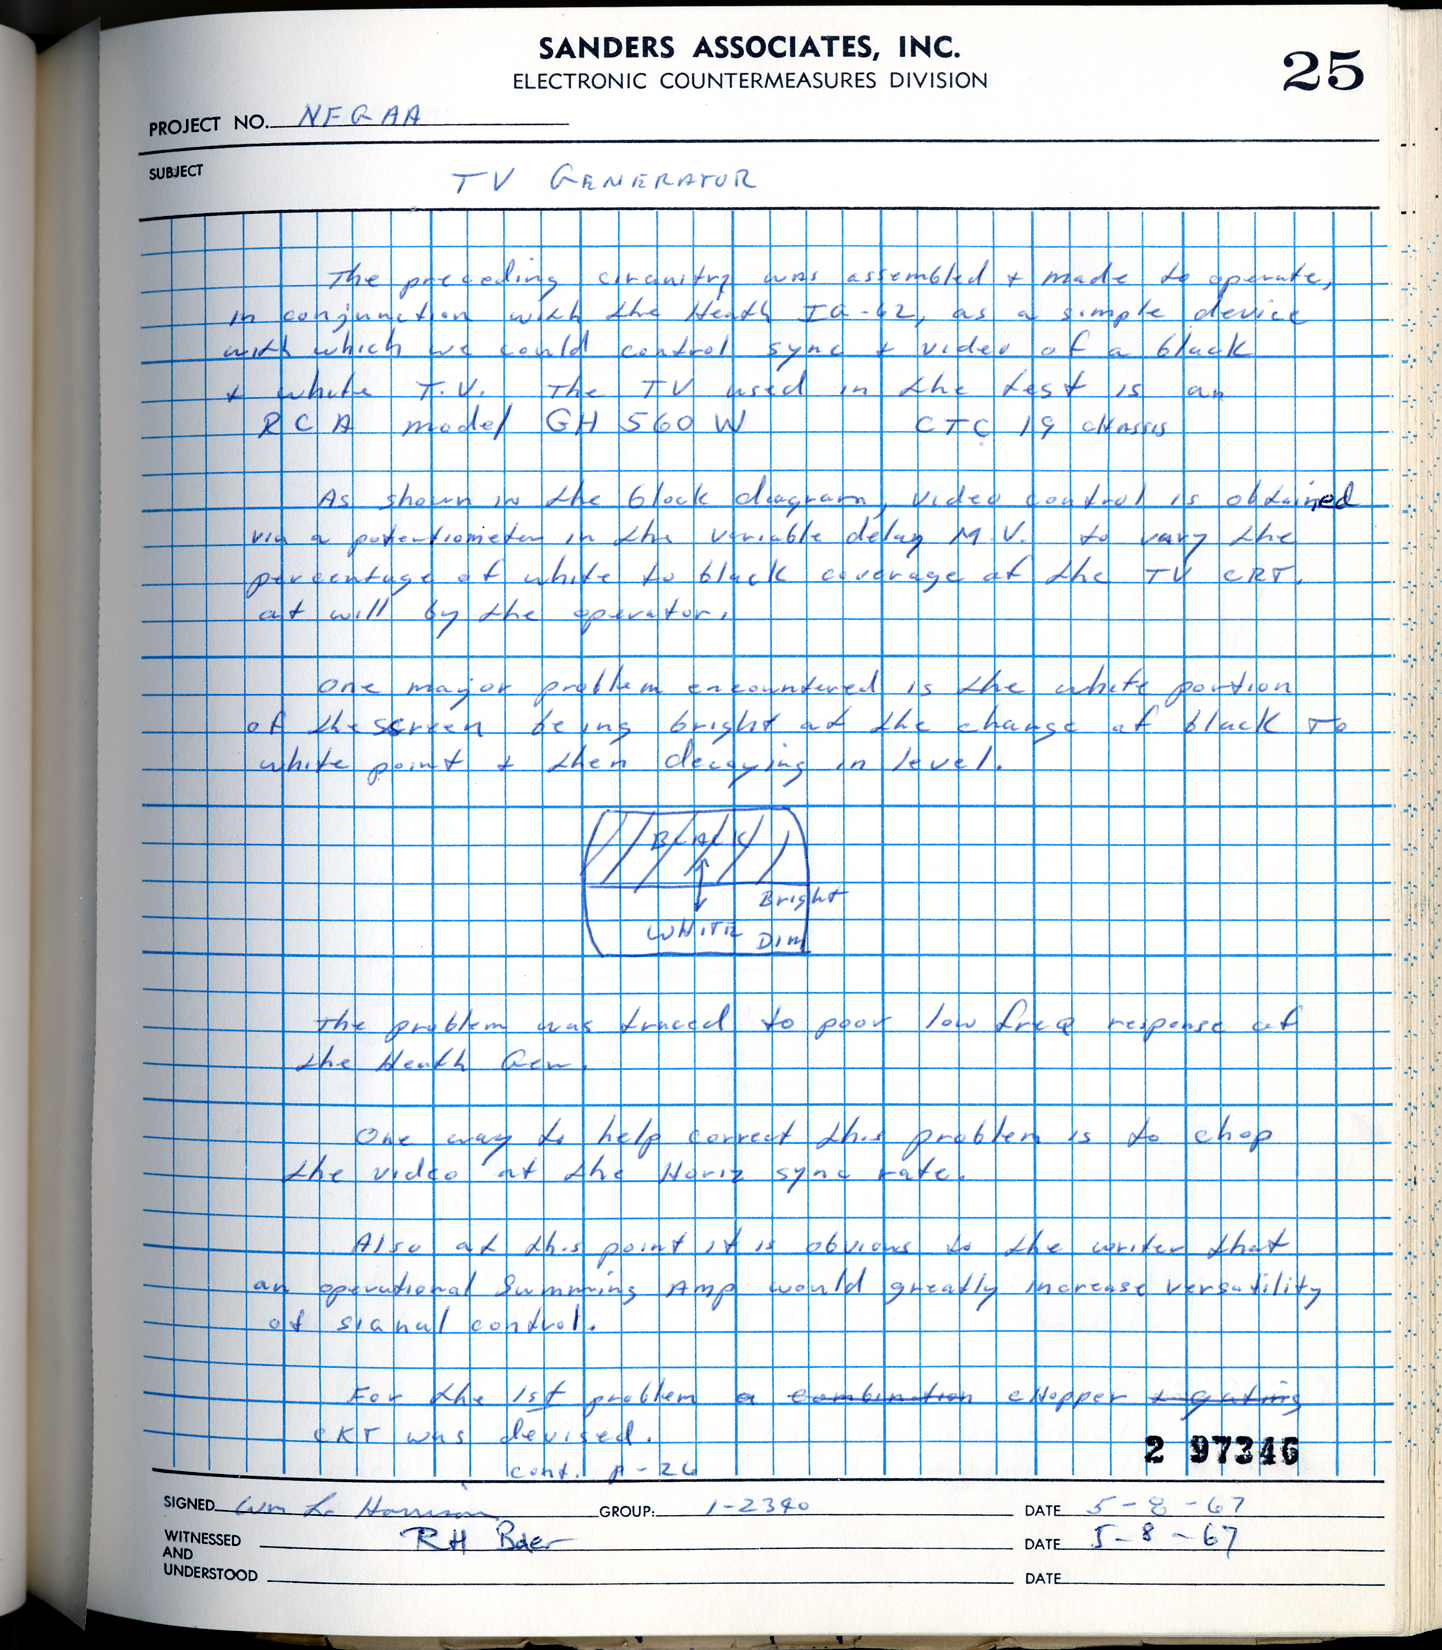 SANDERS ASSOCIATES, INC.
ELECTRONIC COUNTERMEASURES DIVISION
25
PROJECT NO. NFQAA
SUBJECT
TV GENERATOR
The preceding circuitry was assembled + made to operate,
in conjunction with the Heath IG-62, as a simple device
with which we could control sync + video of a black
+ white T.V. The TV used in the test is an
RCA model GH 560 W CTC 19 chassis
As shown in the block diagram, video control is obtained
via a potentiometer in the variable delay M.V. to vary the
percentage of white to black coverage of the TV CRT.
at will by the operator.
One major problem encountered is the white portion
of the screen being bright at the change of black To
white point + then decaying in level.
BLACK
Bright
WHITE Dim
The problem was traced to poor low freq response of
the Heath Gen.
One way to help correct this problem is to chop
the video at the Horiz sync rate.
Also at this point it is obvious to the writer that
an operational Summing Amp would greatly increase versatility
of signal control.
For the 1st problem a combination chopper + gating
CKT was devised.
cont. p-26
2 97346
SIGNED Wm L. Harrison GROUP: 1-2340 DATE 5-8-67
WITNESSED RH Baer DATE 5-8-67
AND
UNDERSTOOD DATE